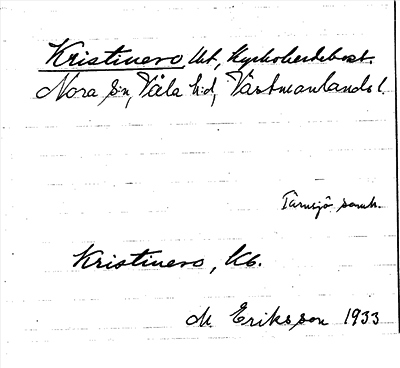 Kristinero, Ut, Kyrkoherdebost.
Nora s:n, Våla h:d, Västmanlands l.
Tärnsjö samh.
Kristinero, Ub.
M. Eriksson 1933